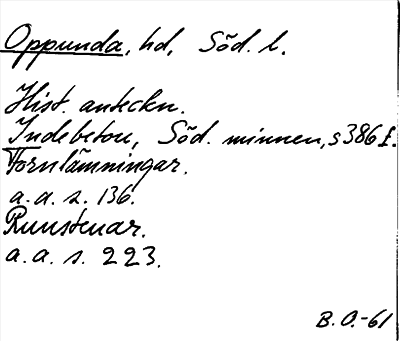 Oppunda, hd, Söd. l.
Hist. anteckn.
Indebetou, Söd. minnen, s 386 f.
Fornlämningar.
a. a. s. 136.
Runstenar.
a. a. s. 223.
B. O.-61